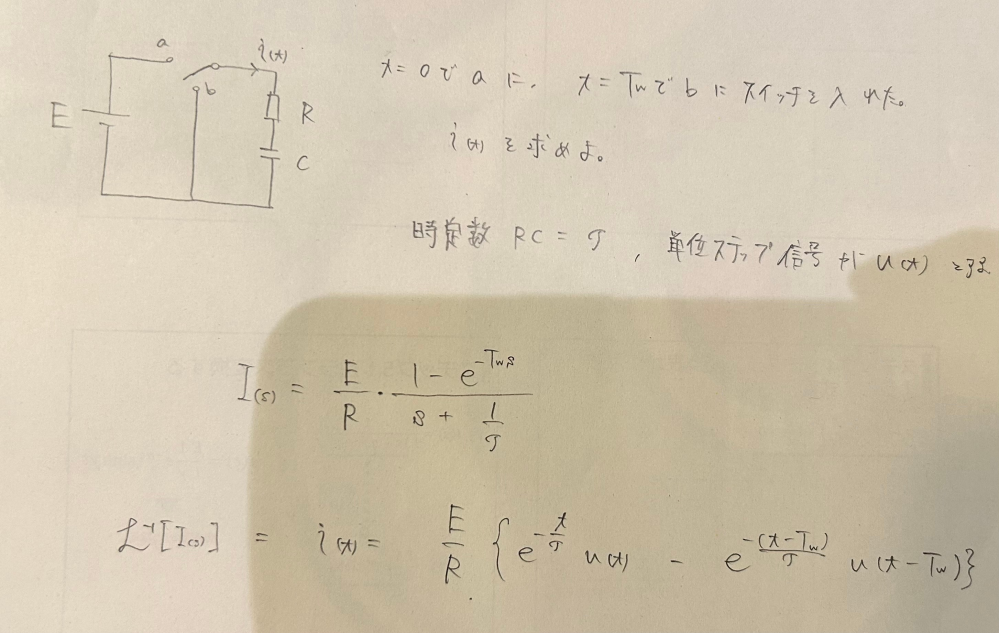 a
i(t)
b
E
R
C
t=0でaに、t=Twでbにスイッチを入れた。
i(t)を求めよ。
時定数 RC = τ, 単位ステップ信号は u(t) とする
I(s) = E/R · (1 - e^{-Tws})/(s + 1/τ)
ℒ⁻¹[I(s)] = i(t) = E/R { e^{-t/τ} u(t) - e^{-(t-Tw)/τ} u(t-Tw) }